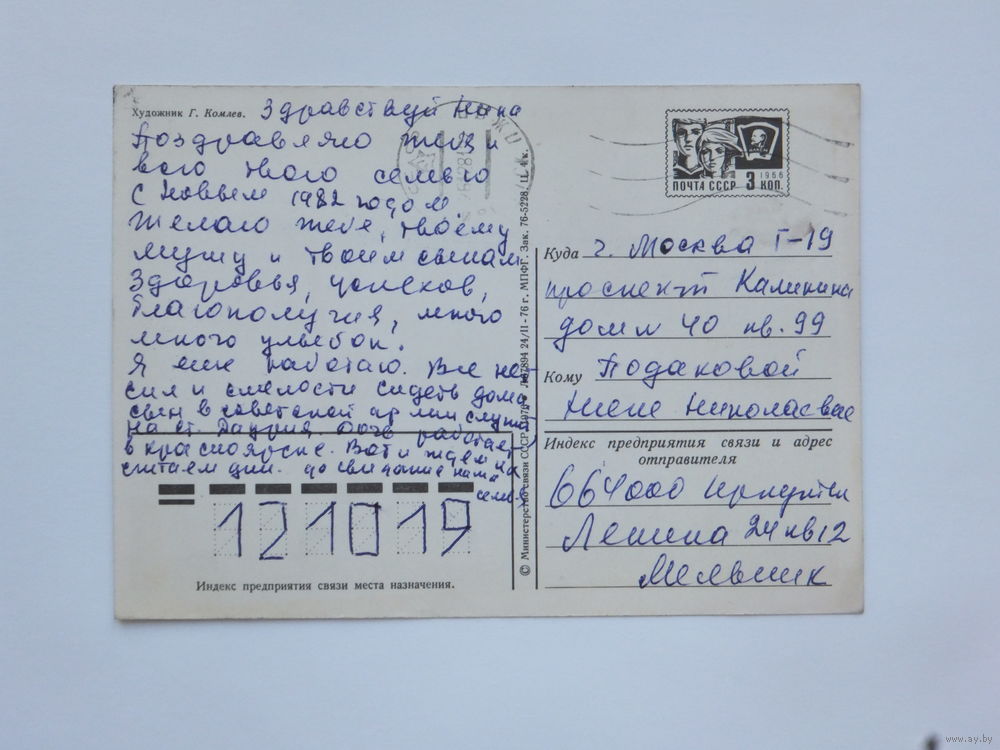 Художник Г. Комлев.
Здравствуй Нина
Поздравляю тебя и
всю твою семью
с Новым 1982 годом
Желаю тебе, твоему
мужу и твоим сынам
здоровья, успехов,
благополучия, много
много улыбок.
Я еще работаю. Все не-
сил и смелости сидеть дома
сын в советской армии служит
на ст. Даурия. Дочь работает
в красноярске. Вот и ждем их
считаем дни. до свидание наша
семья
ПОЧТА СССР 3 КОП.
1966
Куда г. Москва Г-19
проспект Калинина
дом № 40 кв. 99
Кому Подаковой
Нине Николаевне
Индекс предприятия связи и адрес
отправителя
664000 Иркутск
Ленина 24 кв 12
Мельник
121019
Индекс предприятия связи места назначения.
© Министерство связи СССР. 1976. 24/II-76 г. МПФГ. Зак. 76-5228. Ц. 4 к.
www.ay.by